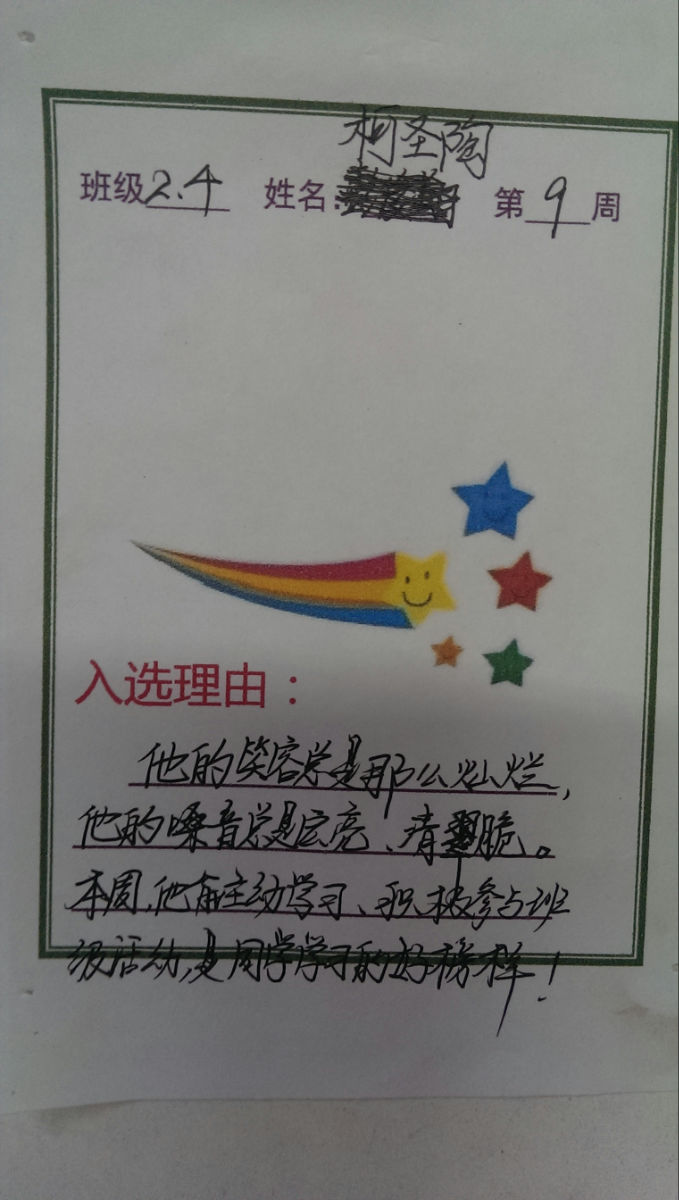 柯圣陶
班级2.4 姓名: 第9周
入选理由：
他的笑容总是那么灿烂,
他的嗓音总是宏亮、清脆。
本周,他能主动学习、积极参与班
级活动,是同学学习的好榜样!